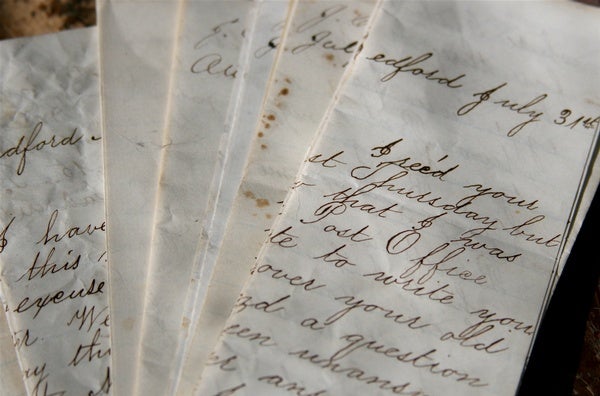 edford July 31st
I rec'd your
st Thursday but
that I was
Post Office
te to write you
over your old
d a question
een unans
er an
dford
I have
this
excuse
r. We
ay thi
J. July
Au